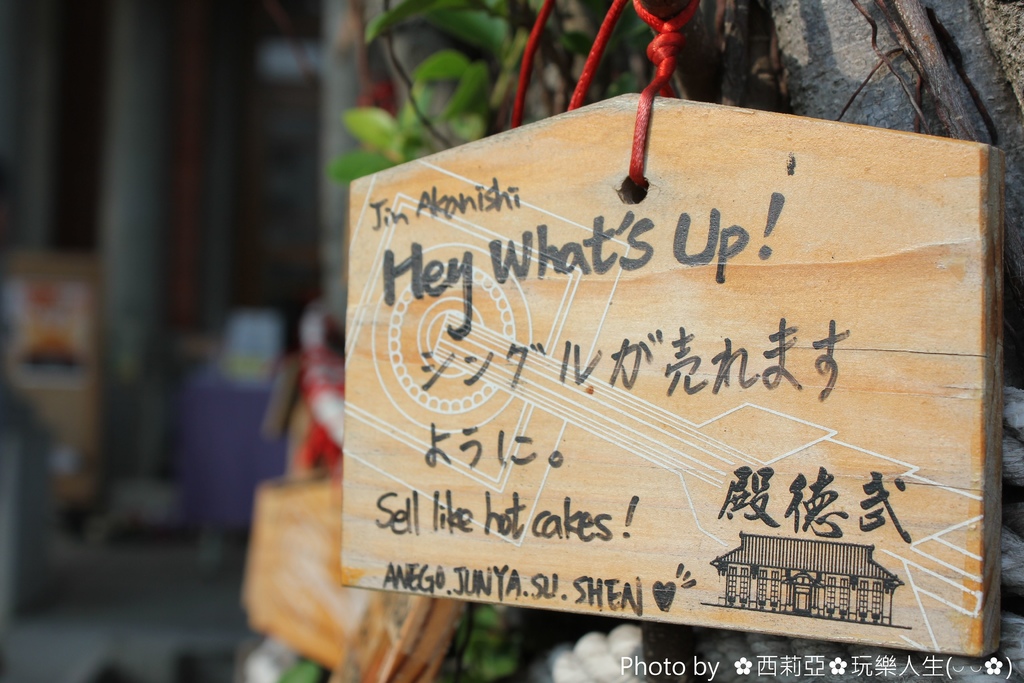 Jin Akanishi
Hey What's Up!
シングルが売れます
ように。
Sell like hot cakes!
ANEGO.JUNYA.SU.SHEN♥
殿德武
Photo by ✿西莉亞✿玩樂人生(◡◡✿)